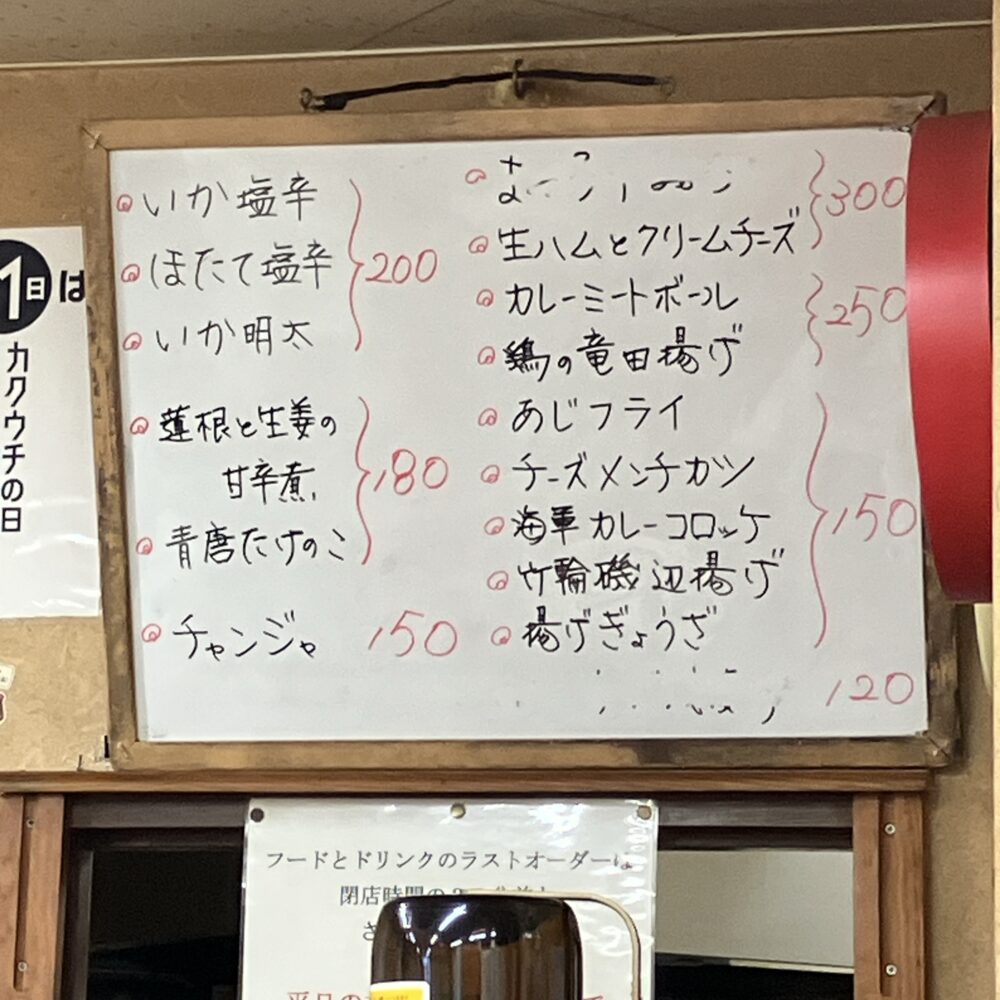 いか塩辛
ほたて塩辛
いか明太
200
蓮根と生姜の
甘辛煮
180
青唐たけのこ
チャンジャ 150
300
生ハムとクリームチーズ
カレーミートボール
250
鶏の竜田揚げ
あじフライ
チーズメンチカツ
海軍カレーコロッケ
150
竹輪磯辺揚げ
揚げぎょうざ
120
1日は
カクウチの日
フードとドリンクのラストオーダーは
閉店時間の